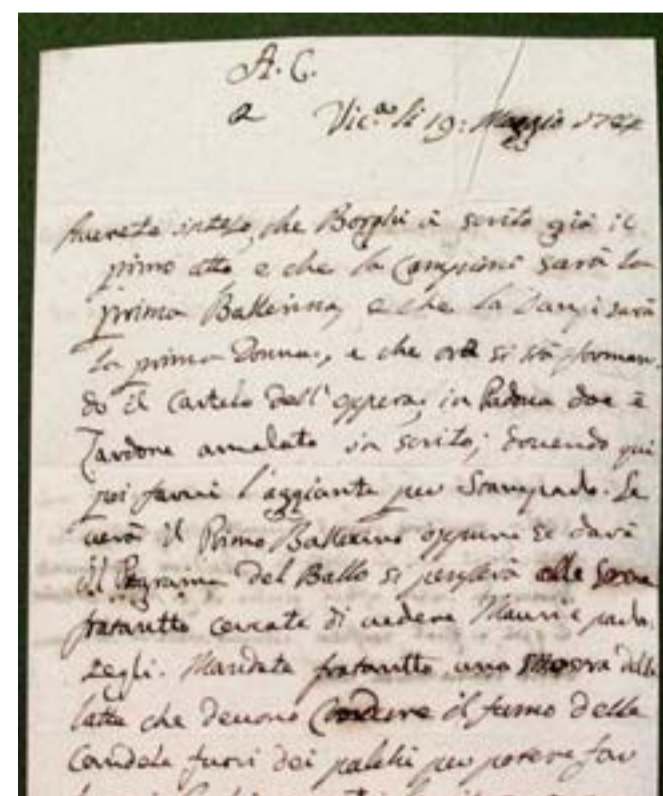 A. C.
a Vic.ª li 19: Maggio 1784
Averete inteso, che Borghi à scrito già il
primo atto e che la Campioni sarà la
prima Ballerina, e che la Danzi sarà
la prima Donna, e che ora si stà forman-
do il Cartelo dell'oppera, in Padoa doe è
Zardone amalato in scrito; dovendo qui
poi farvi l'aggiunta per Stamparlo. Se
verà il Primo Ballerino oppure se darà
il Programa del Ballo si penserà alle Scene
fratantto cercate di vedere Mauri e parla-
tegli. Mandate fratantto una mostra delle
latte che devono Condure il fumo delle
Candele fuori dei palchi per potere far